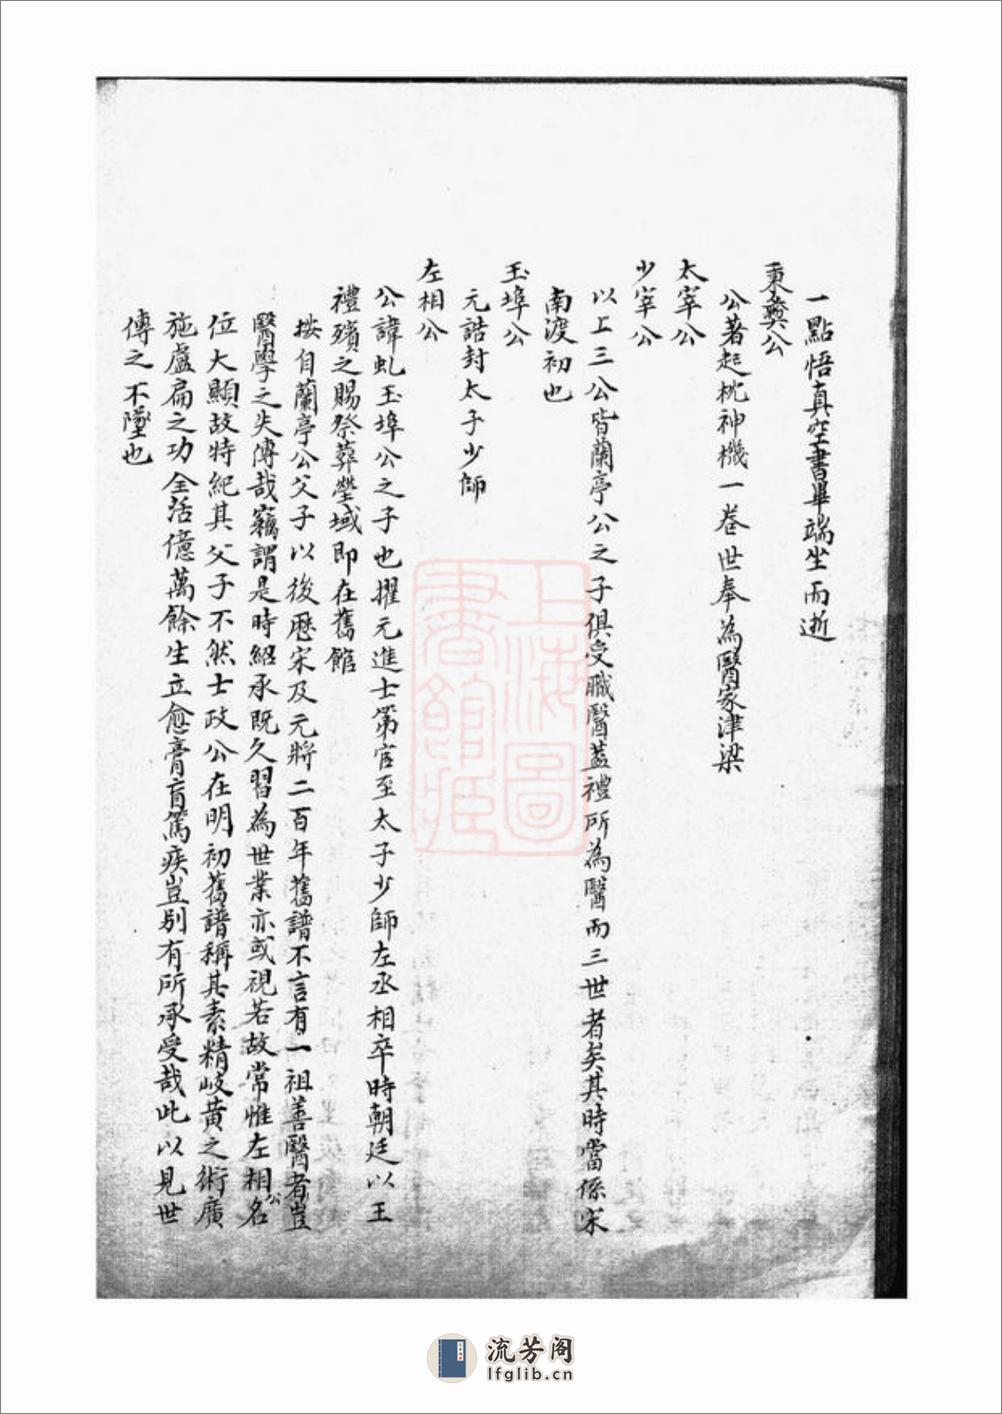 一點悟真空書畢端坐而逝
秉彝公
公著起枕神機一卷世奉為醫家津梁
太宰公
少宰公
以上三公皆蘭亭公之子俱受職醫蓋禮所為醫而三世者矣其時當係宋
南渡初也
玉埠公
元誥封太子少師
左相公
公諱虬玉埠公之子也擢元進士第官至太子少師左丞相卒時朝廷以王
禮殯之賜祭葬塋域即在舊館
按自蘭亭公父子以後歷宋及元將二百年舊譜不言有一祖善醫者豈
醫學之失傳哉竊謂是時紹承既久習為世業亦或視若故常惟左相公名
位大顯故特紀其父子不然士政公在明初舊譜稱其素精岐黃之術廣
施盧扁之功全活億萬餘生立愈膏肓篤疾豈別有所承受哉此以見世
傳之不墜也
上海圖
書館藏
流芳阁
lfglib.cn